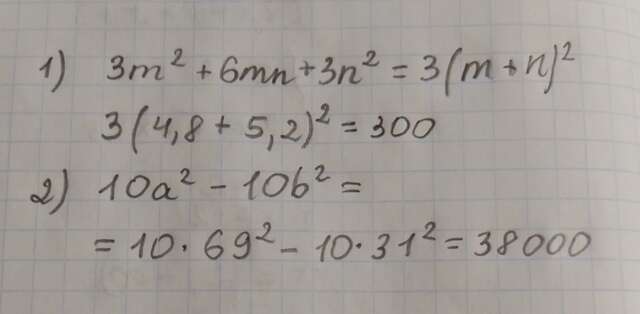 1) 3m² + 6mn + 3n² = 3(m + n)²
3(4,8 + 5,2)² = 300
2) 10a² - 10b² =
= 10 · 69² - 10 · 31² = 38000